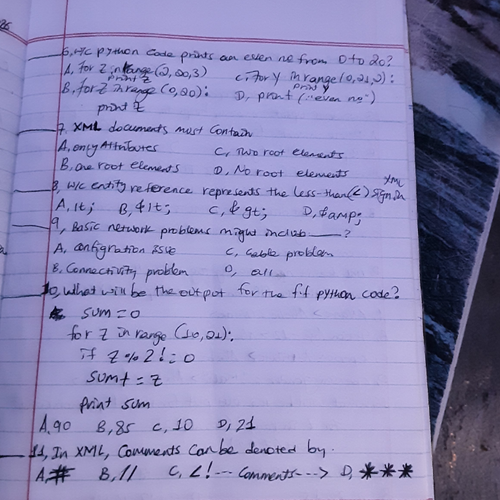 6, w/c python code prints an even no from 0 to 20?
A, for Z in range(0,20,3) C, for y in range(0,21,2):
print Z print y
B, for Z in range(0,20): D, print ("even no")
print Z
7, XML documents must contain
A, only Attributes C, Two root elements
B, one root elements D, No root elements
8, w/c entity reference represents the less-than(<) sign in XML
A, lt; B, &lt; C, &gt; D, &amp;
9, Basic network problems might includ ___?
A, configration issue C, Cable problem
B, Connectivity problem D, all
10, What will be the output for the f.f python code?
sum=0
for Z in range (10,21):
if Z%2!=0
sum+=Z
print sum
A, 90 B, 85 C, 10 D, 21
11, In XML, Comments can be denoted by.
A, # B, // C, <!--- Comments---> D, ***